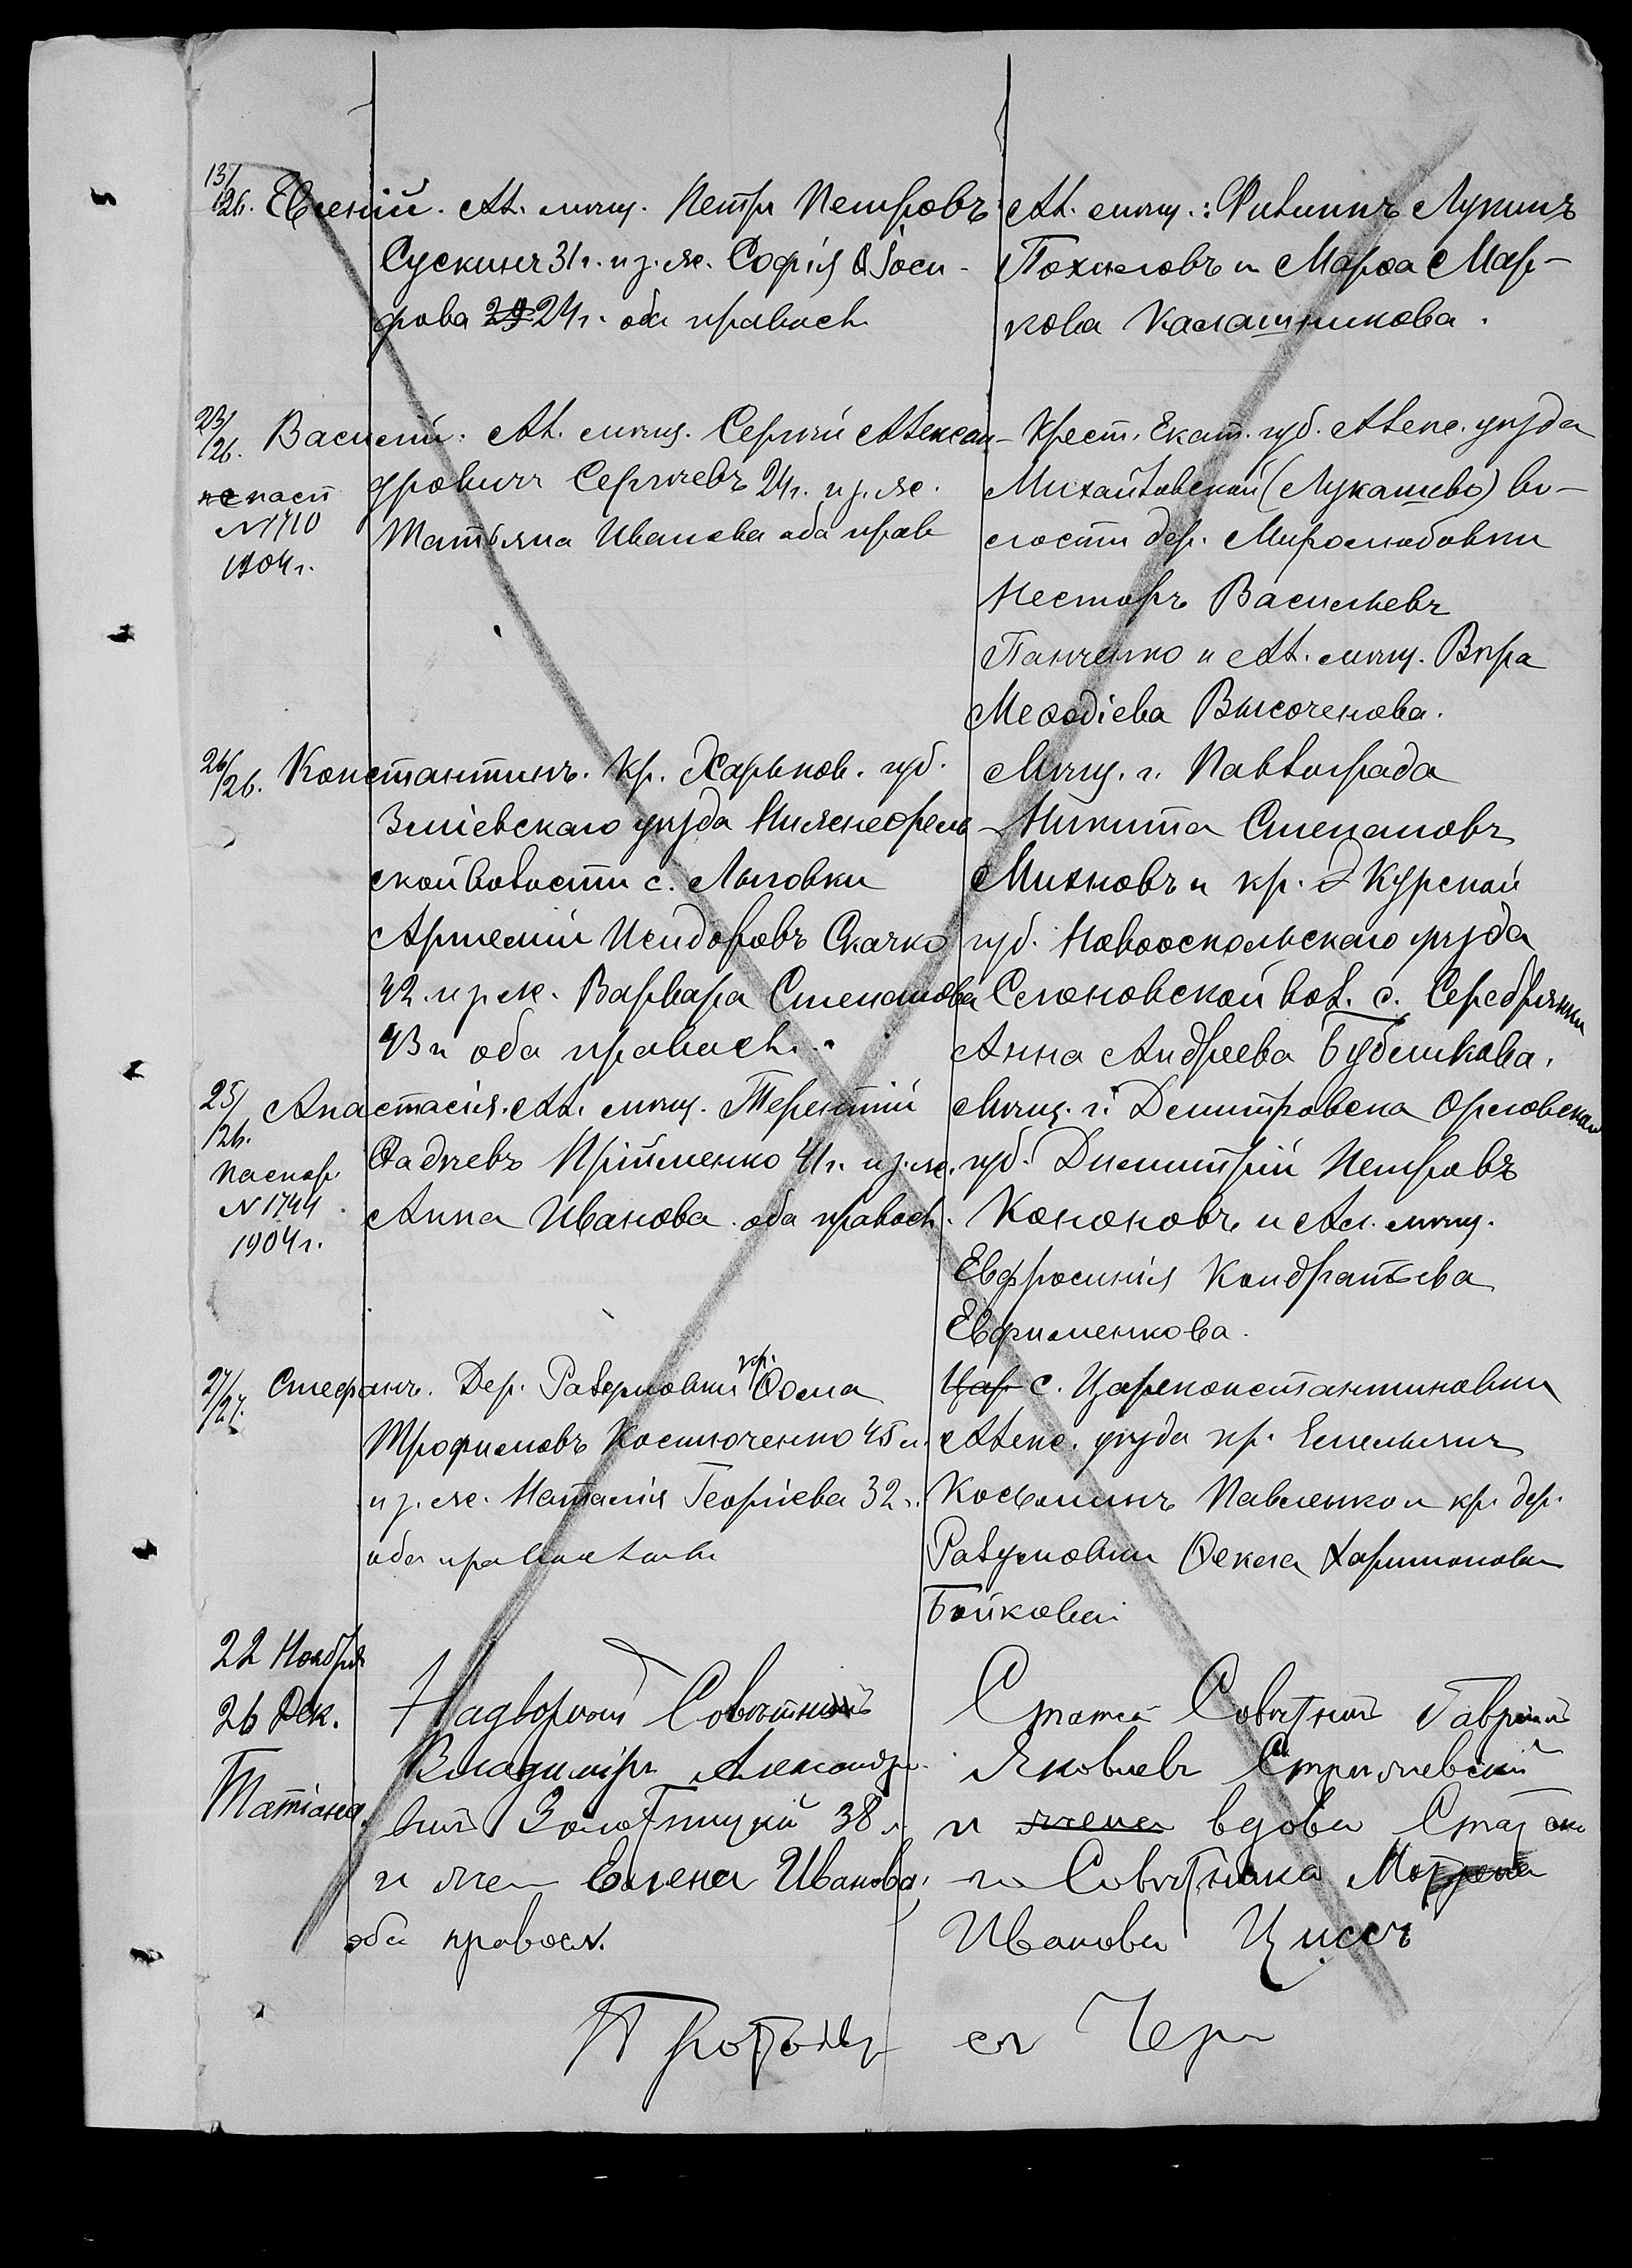 13/26. Евгеній. Ал. мѣщ. Петръ Петровъ
Сускинъ 31 г. и з. ж. Софія Ѳ Іоси-
фова 29 24 г. оба правосл.
Ал. мѣщ.: Филиппъ Лукинъ
Похиловъ и Марѳа Мар-
кова Калашникова.
23/26. Василій. Ал. мѣщ. Сергѣй Алексан-
дровичъ Сергѣевъ 24 г. и з. ж.
Татьяна Иванова оба прав
пасп
№ 1710
1904 г.
Крест. Екат. губ. Алекс. уѣзда
Михайловской (Лукашево) во-
лости дер. Миролюбовки
Несторъ Васильевъ
Панченко и Ал. мѣщ. Вѣра
Меѳодіева Высоченова.
26/26. Константинъ. Кр. Харьков. губ.
Зміевскаго уѣзда Нижнеорель-
ской волости с. Лиговки
Артемій Исидоровъ Скачко
42 и з. ж. Варвара Степанова
43 л оба правосл.
Мѣщ. г. Павлограда
Никита Степановъ
Михновъ и кр. Курской
губ. Новооскольскаго уѣзда
Слоновской вол. с. Серебрянки
Анна Андреева Бубликова.
25/26. Анастасія. Ал. мѣщ. Терентій
Ѳадѣевъ Прійменко 41 г. и з. ж.
Анна Иванова оба правосл.
Паспор
№ 1744
1904 г.
Мѣщ. г. Дмитровска Орловской
губ. Димитрій Петровъ
Кононовъ и Ал. мѣщ.
Евфросинія Кондратьева
Евфименкова.
27/27. Стефанъ. Дер. Разумовки кр. Ѳома
Трофимовъ Костюченко 45 л.
и з. ж. Наталія Георгіева 32 г.
оба православн
Цар с. Цареконстантиновки
Алекс. уѣзда кр. Емельянъ
Косьминъ Павленко и кр. дер.
Разумовки Ѳекла Харитонова
Бойкова
22 Ноября
26 Дек.
Татіана
Надворный Совѣтникъ
Владиміръ Александро-
вичъ Золотницкій 38 л
и жен Елена Иванова,
оба правосл.
Статск Совѣтникъ Гавріилъ
Яковлевъ
и жена вдова Статска
го Совѣтника Матрена
Иванова Циссъ